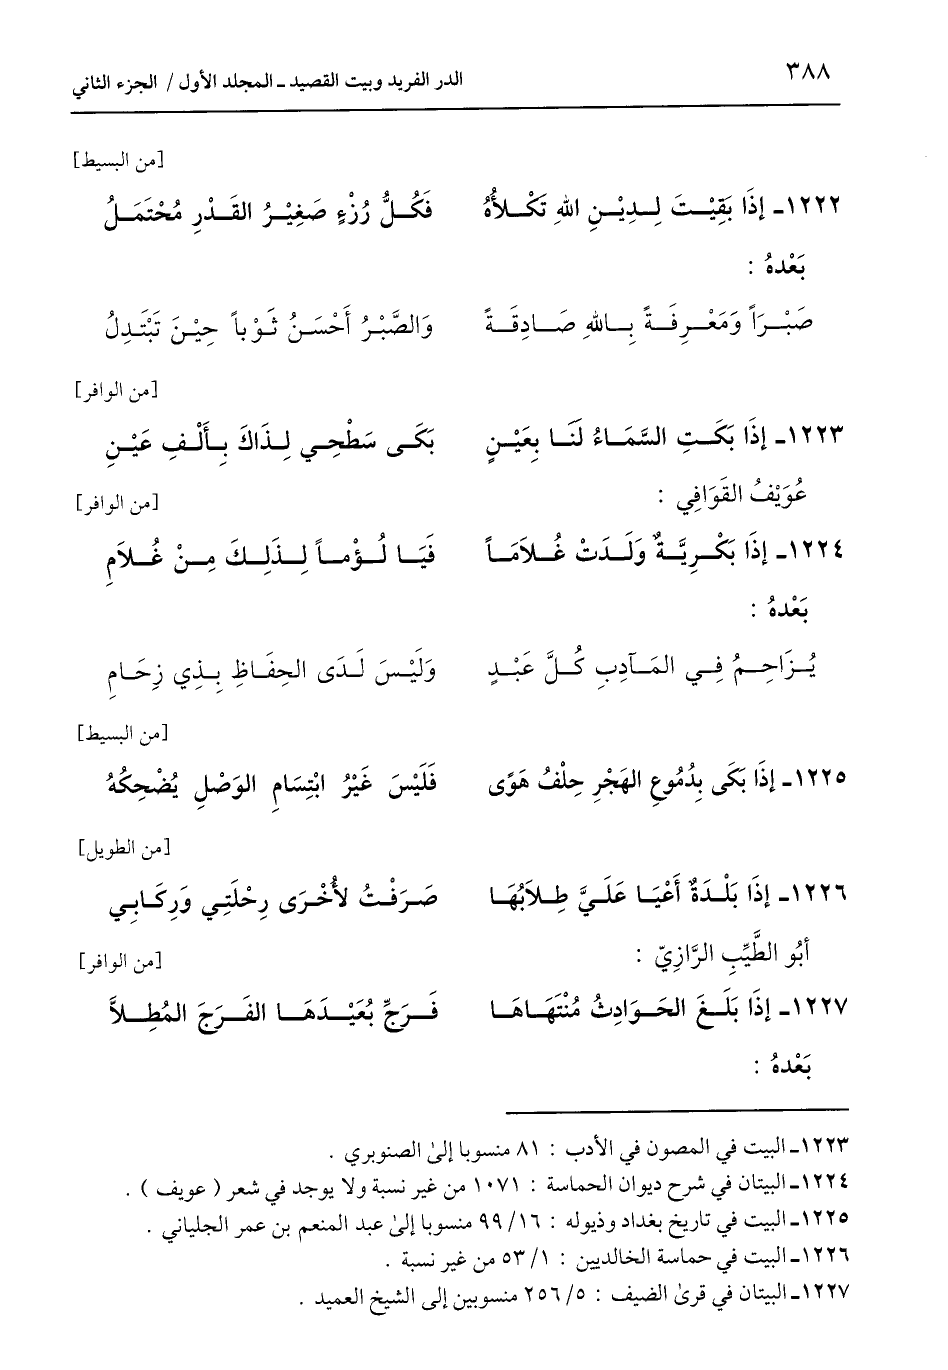 ٣٨٨ الدر الفريد وبيت القصيد ـ المجلد الأول / الجزء الثاني
[من البسيط]
١٢٢٢ـ إِذَا بَقِيْتَ لِدِيْنِ اللهِ تَكْلأُهُ فَكُلُّ رُزْءٍ صَغِيْرُ القَدْرِ مُحْتَمَلُ
بَعْدهُ :
صَبْرَاً وَمَعْرِفَةً بِاللهِ صَادِقَةً وَالصَّبْرُ أَحْسَنُ ثَوْباً حِيْنَ تَبْتَدِلُ
[من الوافر]
١٢٢٣ـ إِذَا بَكَتِ السَّمَاءُ لَنَا بِعَيْنٍ بَكَى سَطْحِي لِذَاكَ بِأَلْفِ عَيْنِ
عُوَيْفُ القَوَافِي : [من الوافر]
١٢٢٤ـ إِذَا بَكْرِيَّةٌ وَلَدَتْ غُلاَمَاً فَيَا لُؤْماً لِذَلِكَ مِنْ غُلاَمِ
بَعْدهُ :
يُزَاحِمُ فِي المَآدِبِ كُلَّ عَبْدٍ وَلَيْسَ لَدَى الحِفَاظِ بِذِي زِحَامِ
[من البسيط]
١٢٢٥ـ إِذَا بَكَى بِدُمُوعِ الهَجْرِ حِلْفُ هَوًى فَلَيْسَ غَيْرُ ابْتِسَامِ الوَصْلِ يُضْحِكُهُ
[من الطويل]
١٢٢٦ـ إِذَا بَلْدَةٌ أَعْيَا عَلَيَّ طِلاَبُهَا صَرَفْتُ لأُخْرَى رِحْلَتِي وَرِكَابِي
أَبُو الطَّيِّبِ الرَّازِيّ : [من الوافر]
١٢٢٧ـ إِذَا بَلَغَ الحَوَادِثُ مُنْتَهَاهَا فَرَجِّ بُعَيْدَهَا الفَرَجَ المُطِلاَّ
بَعْدهُ :
١٢٢٣ـ البيت في المصون في الأدب : ٨١ منسوبا إلىٰ الصنوبري .
١٢٢٤ـ البيتان في شرح ديوان الحماسة : ١٠٧١ من غير نسبة ولا يوجد في شعر ( عويف ) .
١٢٢٥ـ البيت في تاريخ بغداد وذيوله : ١٦/ ٩٩ منسوبا إلىٰ عبد المنعم بن عمر الجلياني .
١٢٢٦ـ البيت في حماسة الخالديين : ١/ ٥٣ من غير نسبة .
١٢٢٧ـ البيتان في قرىٰ الضيف : ٥/ ٢٥٦ منسوبين إلى الشيخ العميد .